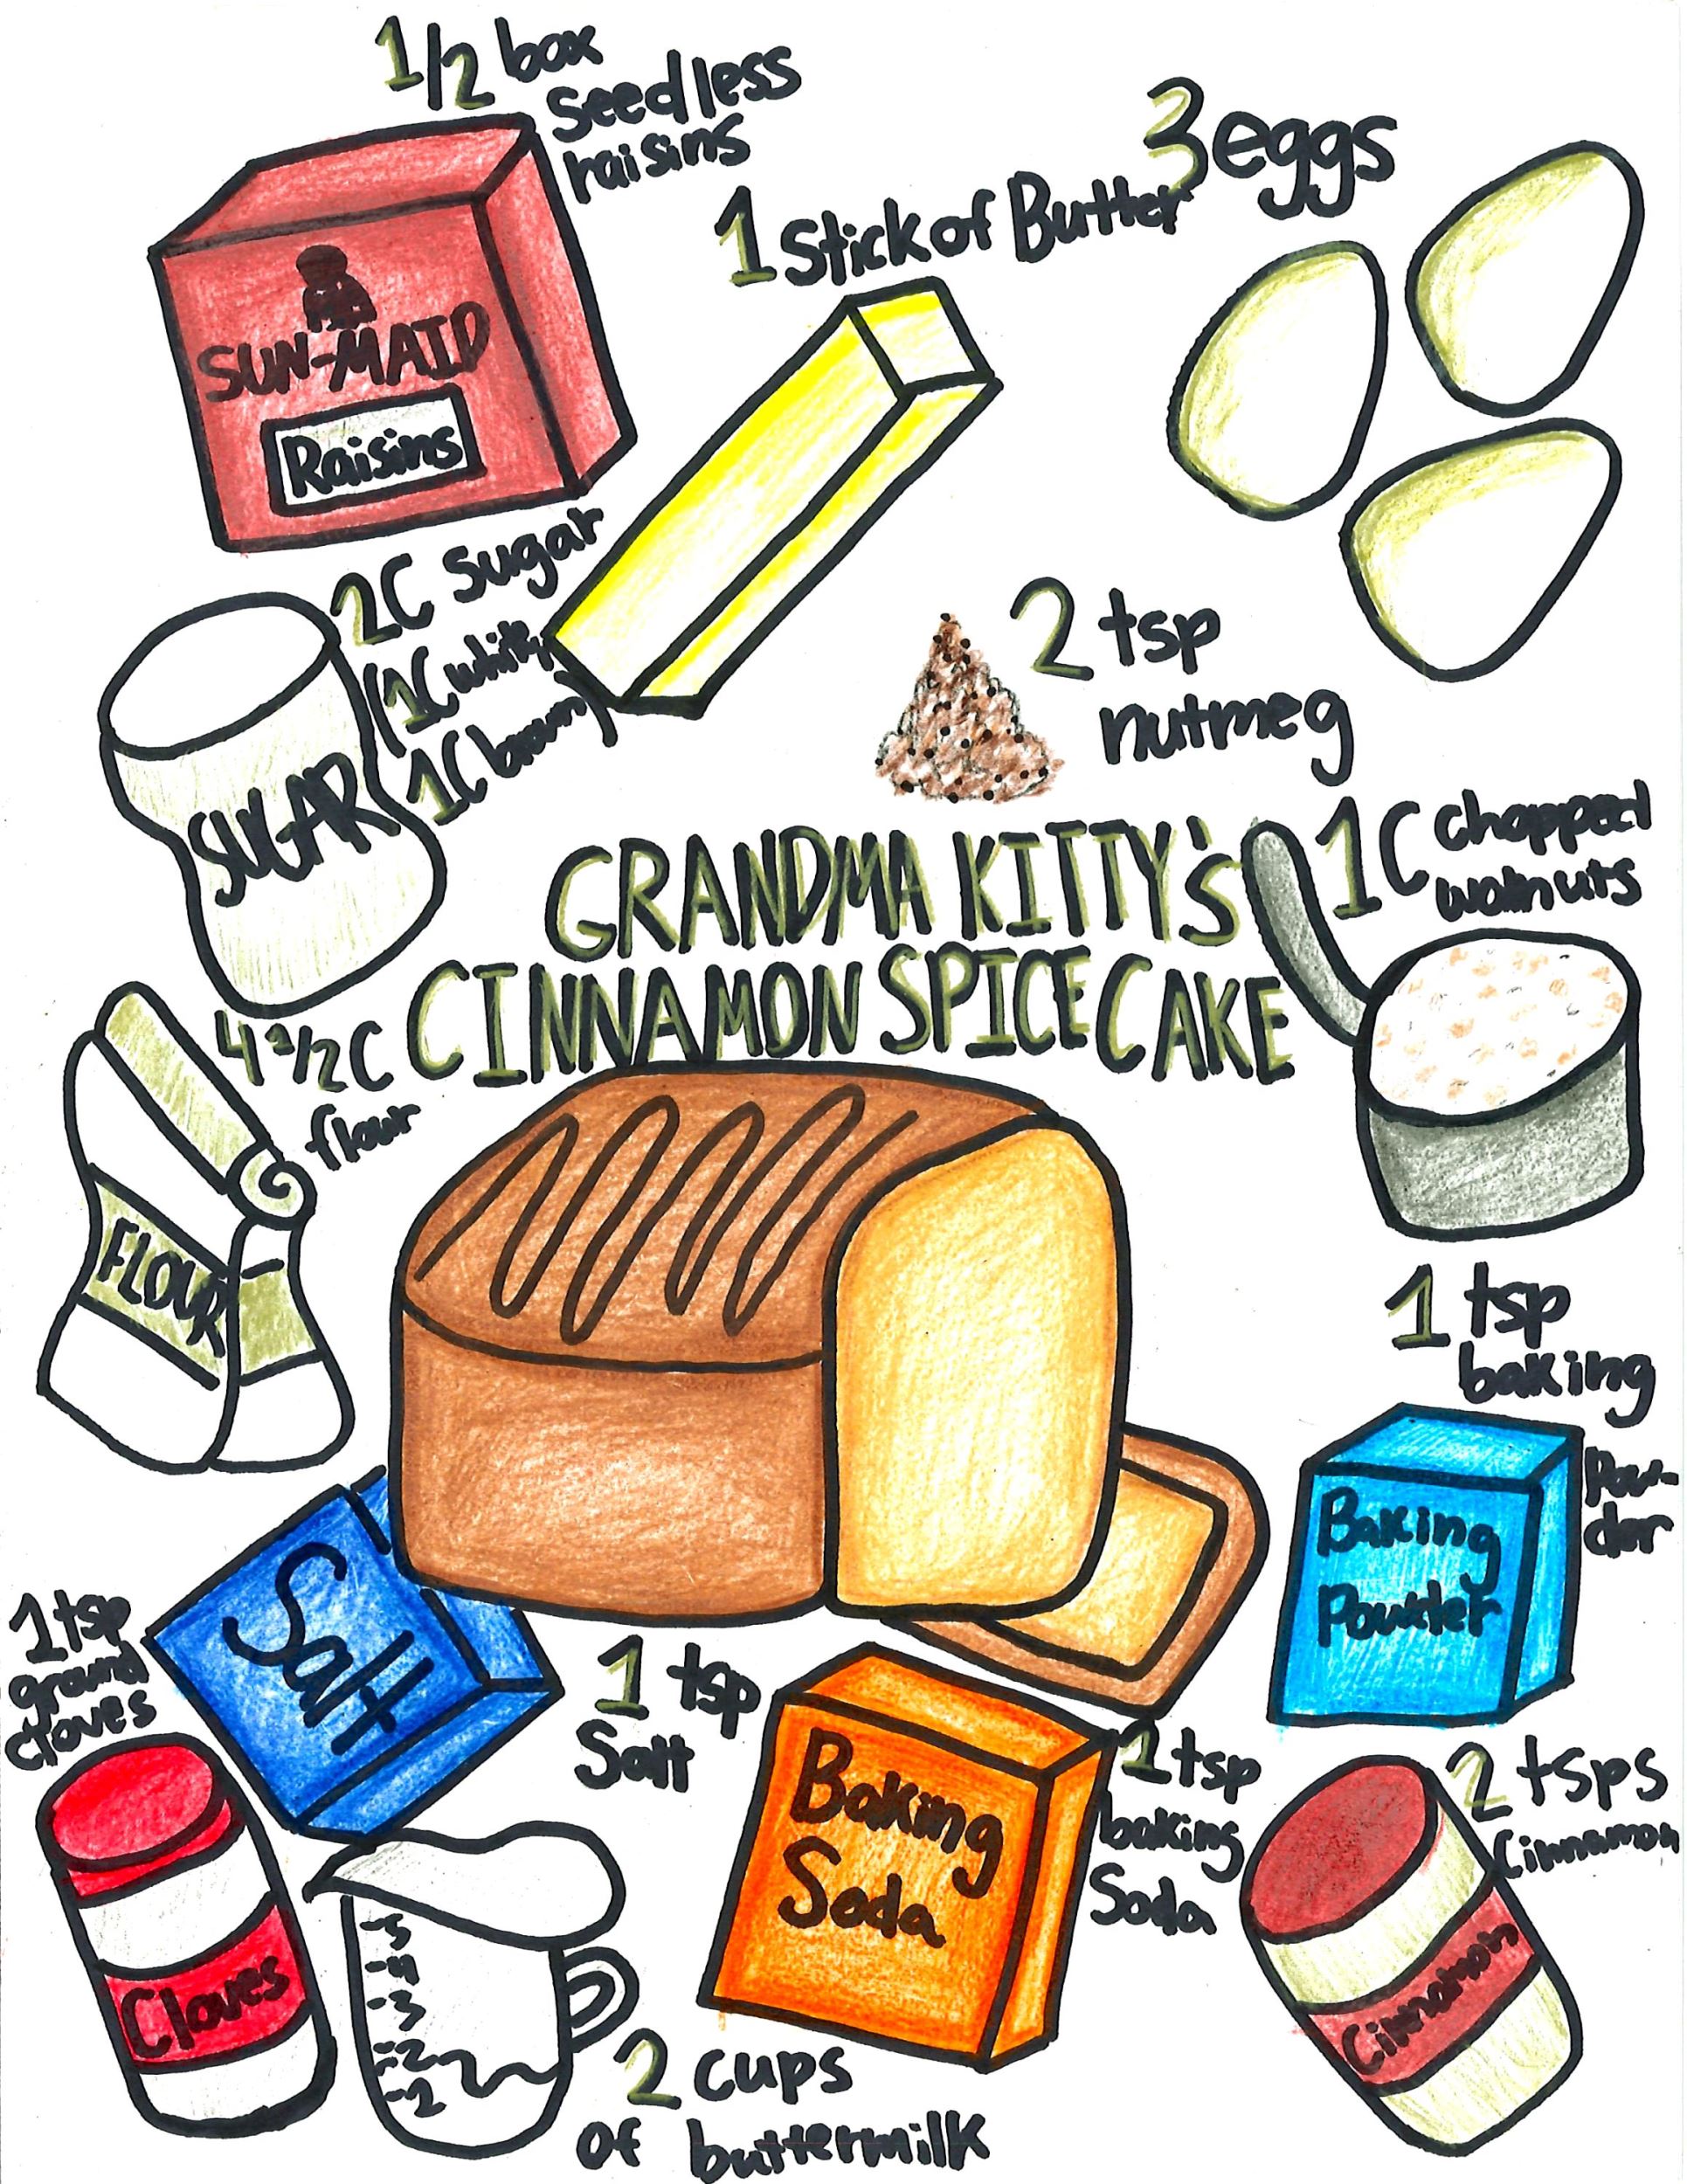 1/2 box
seedless
raisins
SUN-MAID
Raisins
1 Stick of Butter
3 eggs
2C sugar
(1C white,
1C brown)
SUGAR
2 tsp
nutmeg
GRANDMA KITTY's
CINNAMON SPICE CAKE
1C chopped
walnuts
4 1/2C
flour
FLOUR
1 tsp
baking
Pow-
der
Baking
Powder
Salt
1 tsp
Salt
1 tsp
ground
cloves
Cloves
Baking
Soda
1 tsp
baking
Soda
2 tsps
Cinnamon
Cinnamon
-5
-4
-3
-2
-2
2 cups
of buttermilk